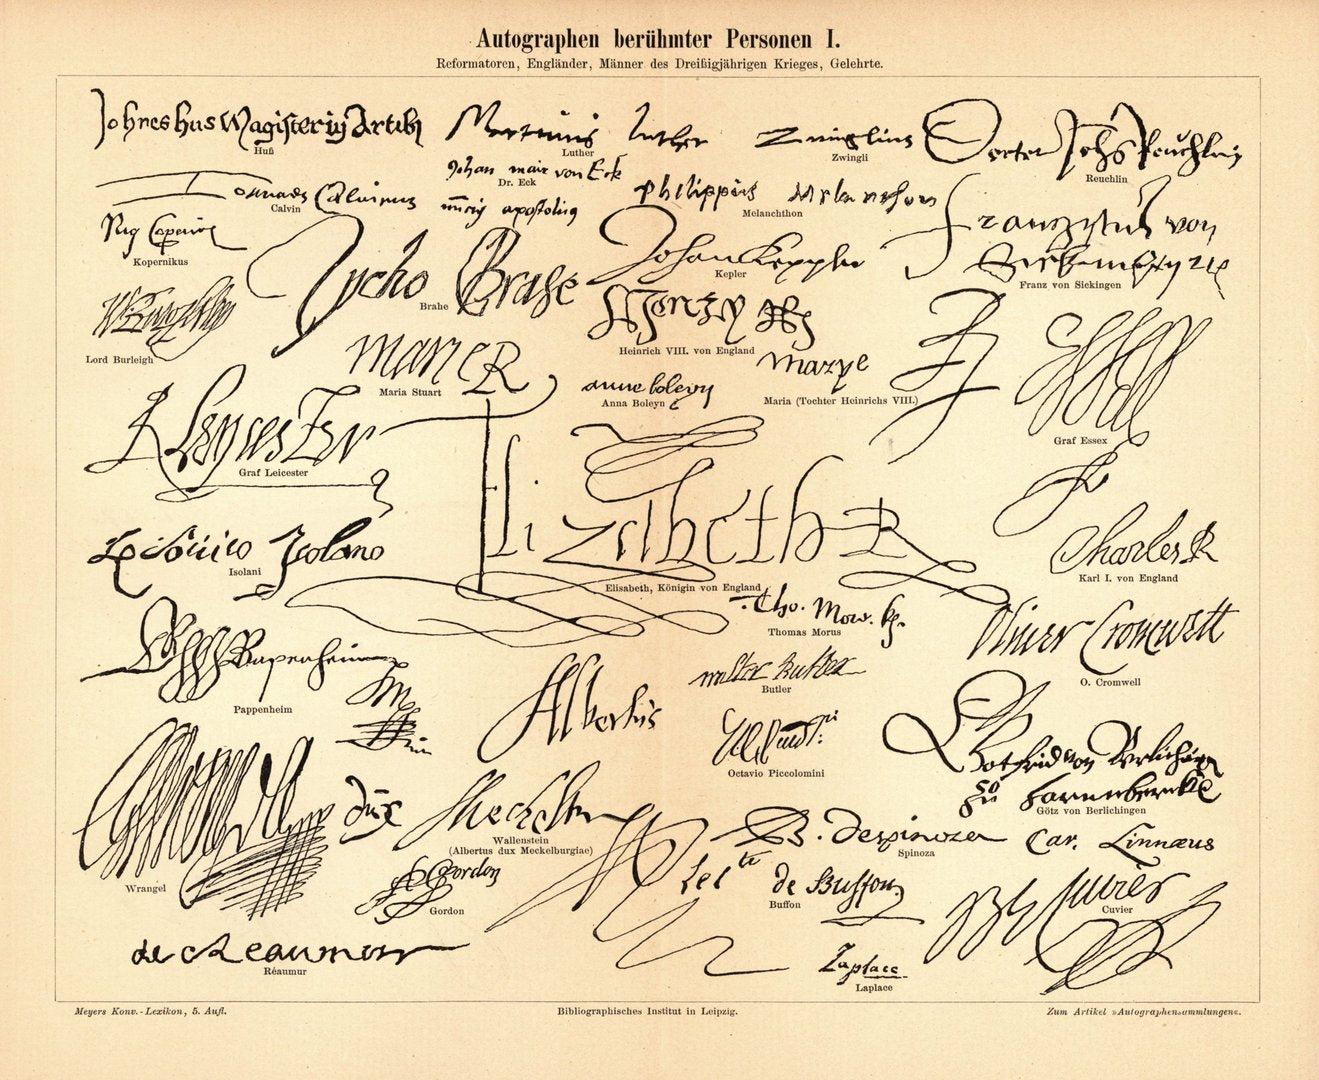 Autographen berühmter Personen I.
Reformatoren, Engländer, Männer des Dreißigjährigen Krieges, Gelehrte.
Johnes hus Magister in Artib
Huß
Martinus Luther
Luther
Zwinglius
Zwingli
Docter Johs Reuchlin
Reuchlin
Johan mair von Eck
Dr. Eck
apostoliq
Joannes Calvinus
Calvin
Philippus Melanthon
Melanchthon
Franziskus von
Franz von Sickingen
Nic Copernic
Kopernikus
Tycho Brahe
Brahe
Johan Keppler
Kepler
Lord Burleigh
Henry
Heinrich VIII. von England
Marie R
Maria Stuart
anne boleyn
Anna Boleyn
Marye
Maria (Tochter Heinrichs VIII.)
Essex
Graf Essex
R Leycester
Graf Leicester
Elizabeth R
Elisabeth, Königin von England
Charles R
Karl I. von England
Isolano
Isolani
Tho. More kg.
Thomas Morus
Oliver Cromwell
O. Cromwell
Papenheim
Pappenheim
Walter Butler
Butler
Albertus
Octavio Piccolomini
Gotfrid von Berlichingen
zu
Götz von Berlichingen
dux Meckelbu
Wallenstein
(Albertus dux Meckelburgiae)
Wrangel
B. despinoza
Spinoza
Car. Linnæus
Gordon
Gordon
le cte de Buffon
Buffon
Cuvier
Cuvier
de Reaumur
Réaumur
Laplace
Laplace
Meyers Konv.-Lexikon, 5. Aufl.
Bibliographisches Institut in Leipzig.
Zum Artikel »Autographensammlungen«.